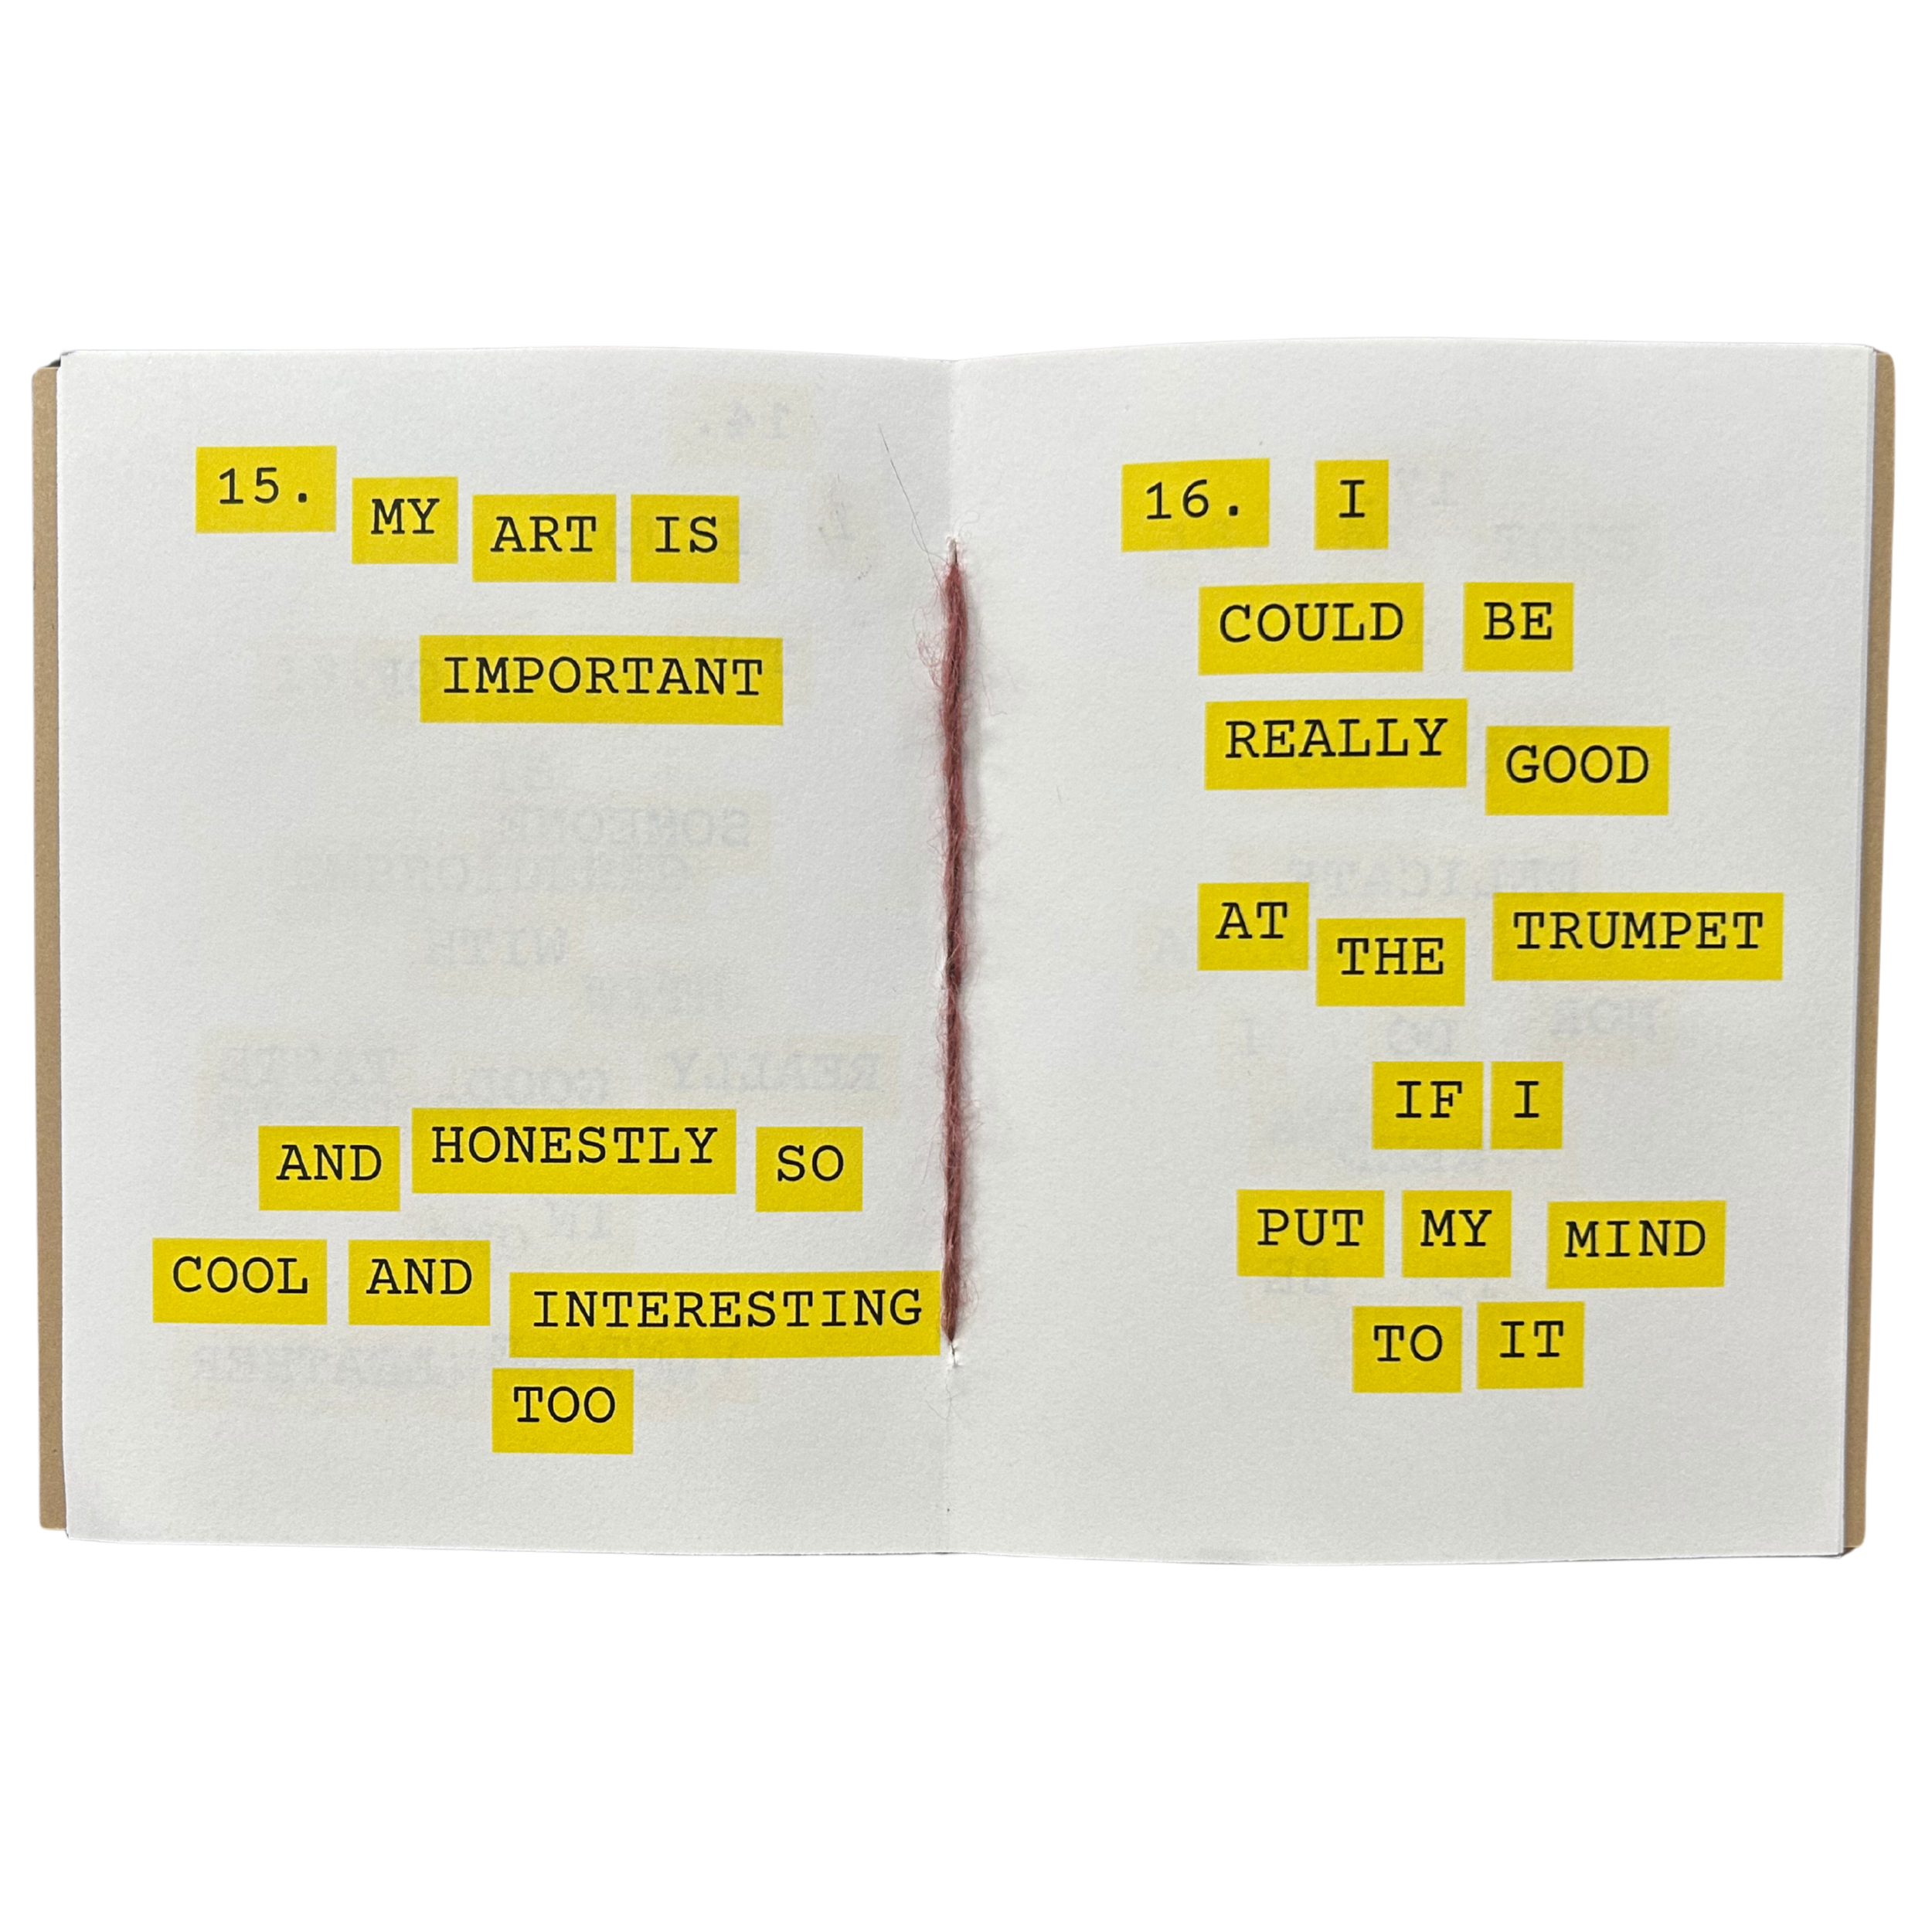 15. MY ART IS
IMPORTANT
AND HONESTLY SO
COOL AND INTERESTING
TOO
16. I
COULD BE
REALLY GOOD
AT THE TRUMPET
IF I
PUT MY MIND
TO IT